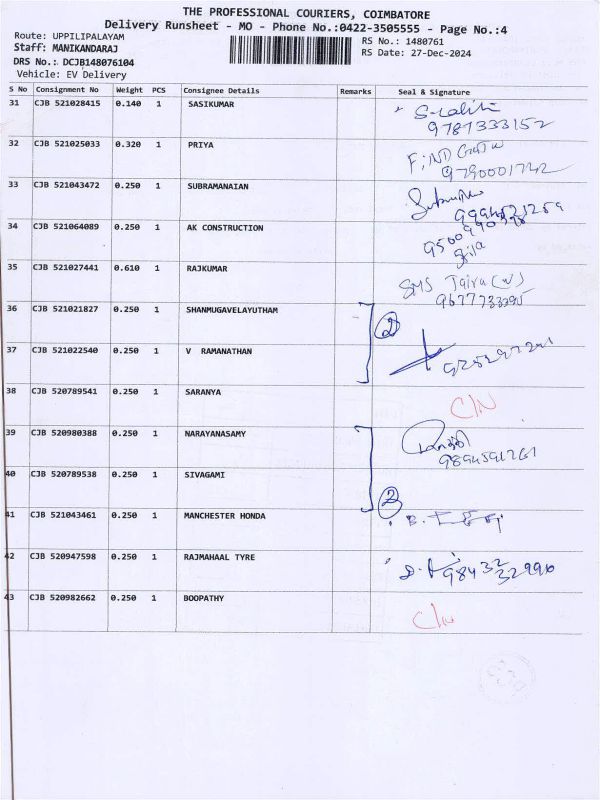 THE PROFESSIONAL COURIERS, COIMBATORE
Delivery Runsheet - MO - Phone No.:0422-3505555 - Page No.:4
Route: UPPILIPALAYAM
Staff: MANIKANDARAJ
DRS No.: DCJB148076104
Vehicle: EV Delivery
RS No.: 1480761
RS Date: 27-Dec-2024
S No Consignment No Weight PCS Consignee Details Remarks Seal & Signature
31 CJB 521028415 0.140 1 SASIKUMAR
9787333152
32 CJB 521025033 0.320 1 PRIYA
33 CJB 521043472 0.250 1 SUBRAMANAIAN
34 CJB 521064089 0.250 1 AK CONSTRUCTION
35 CJB 521027441 0.610 1 RAJKUMAR
36 CJB 521021827 0.250 1 SHANMUGAVELAYUTHAM
2
37 CJB 521022540 0.250 1 V RAMANATHAN
38 CJB 520789541 0.250 1 SARANYA
C/N
39 CJB 520980388 0.250 1 NARAYANASAMY
40 CJB 520789538 0.250 1 SIVAGAMI
41 CJB 521043461 0.250 1 MANCHESTER HONDA
42 CJB 520947598 0.250 1 RAJMAHAAL TYRE
98432 32990
43 CJB 520982662 0.250 1 BOOPATHY
C/N